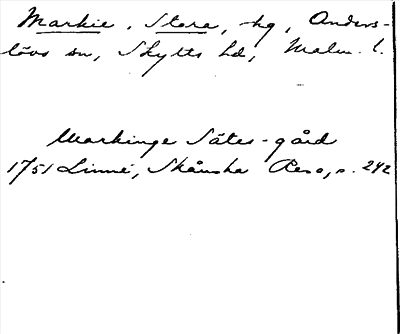 Markie, Stora, hg, Anders-
lövs sn, Skytts hd, Malm. l.
Markinge Sätes-gård
1751 Linné, Skånska Resa, s. 242